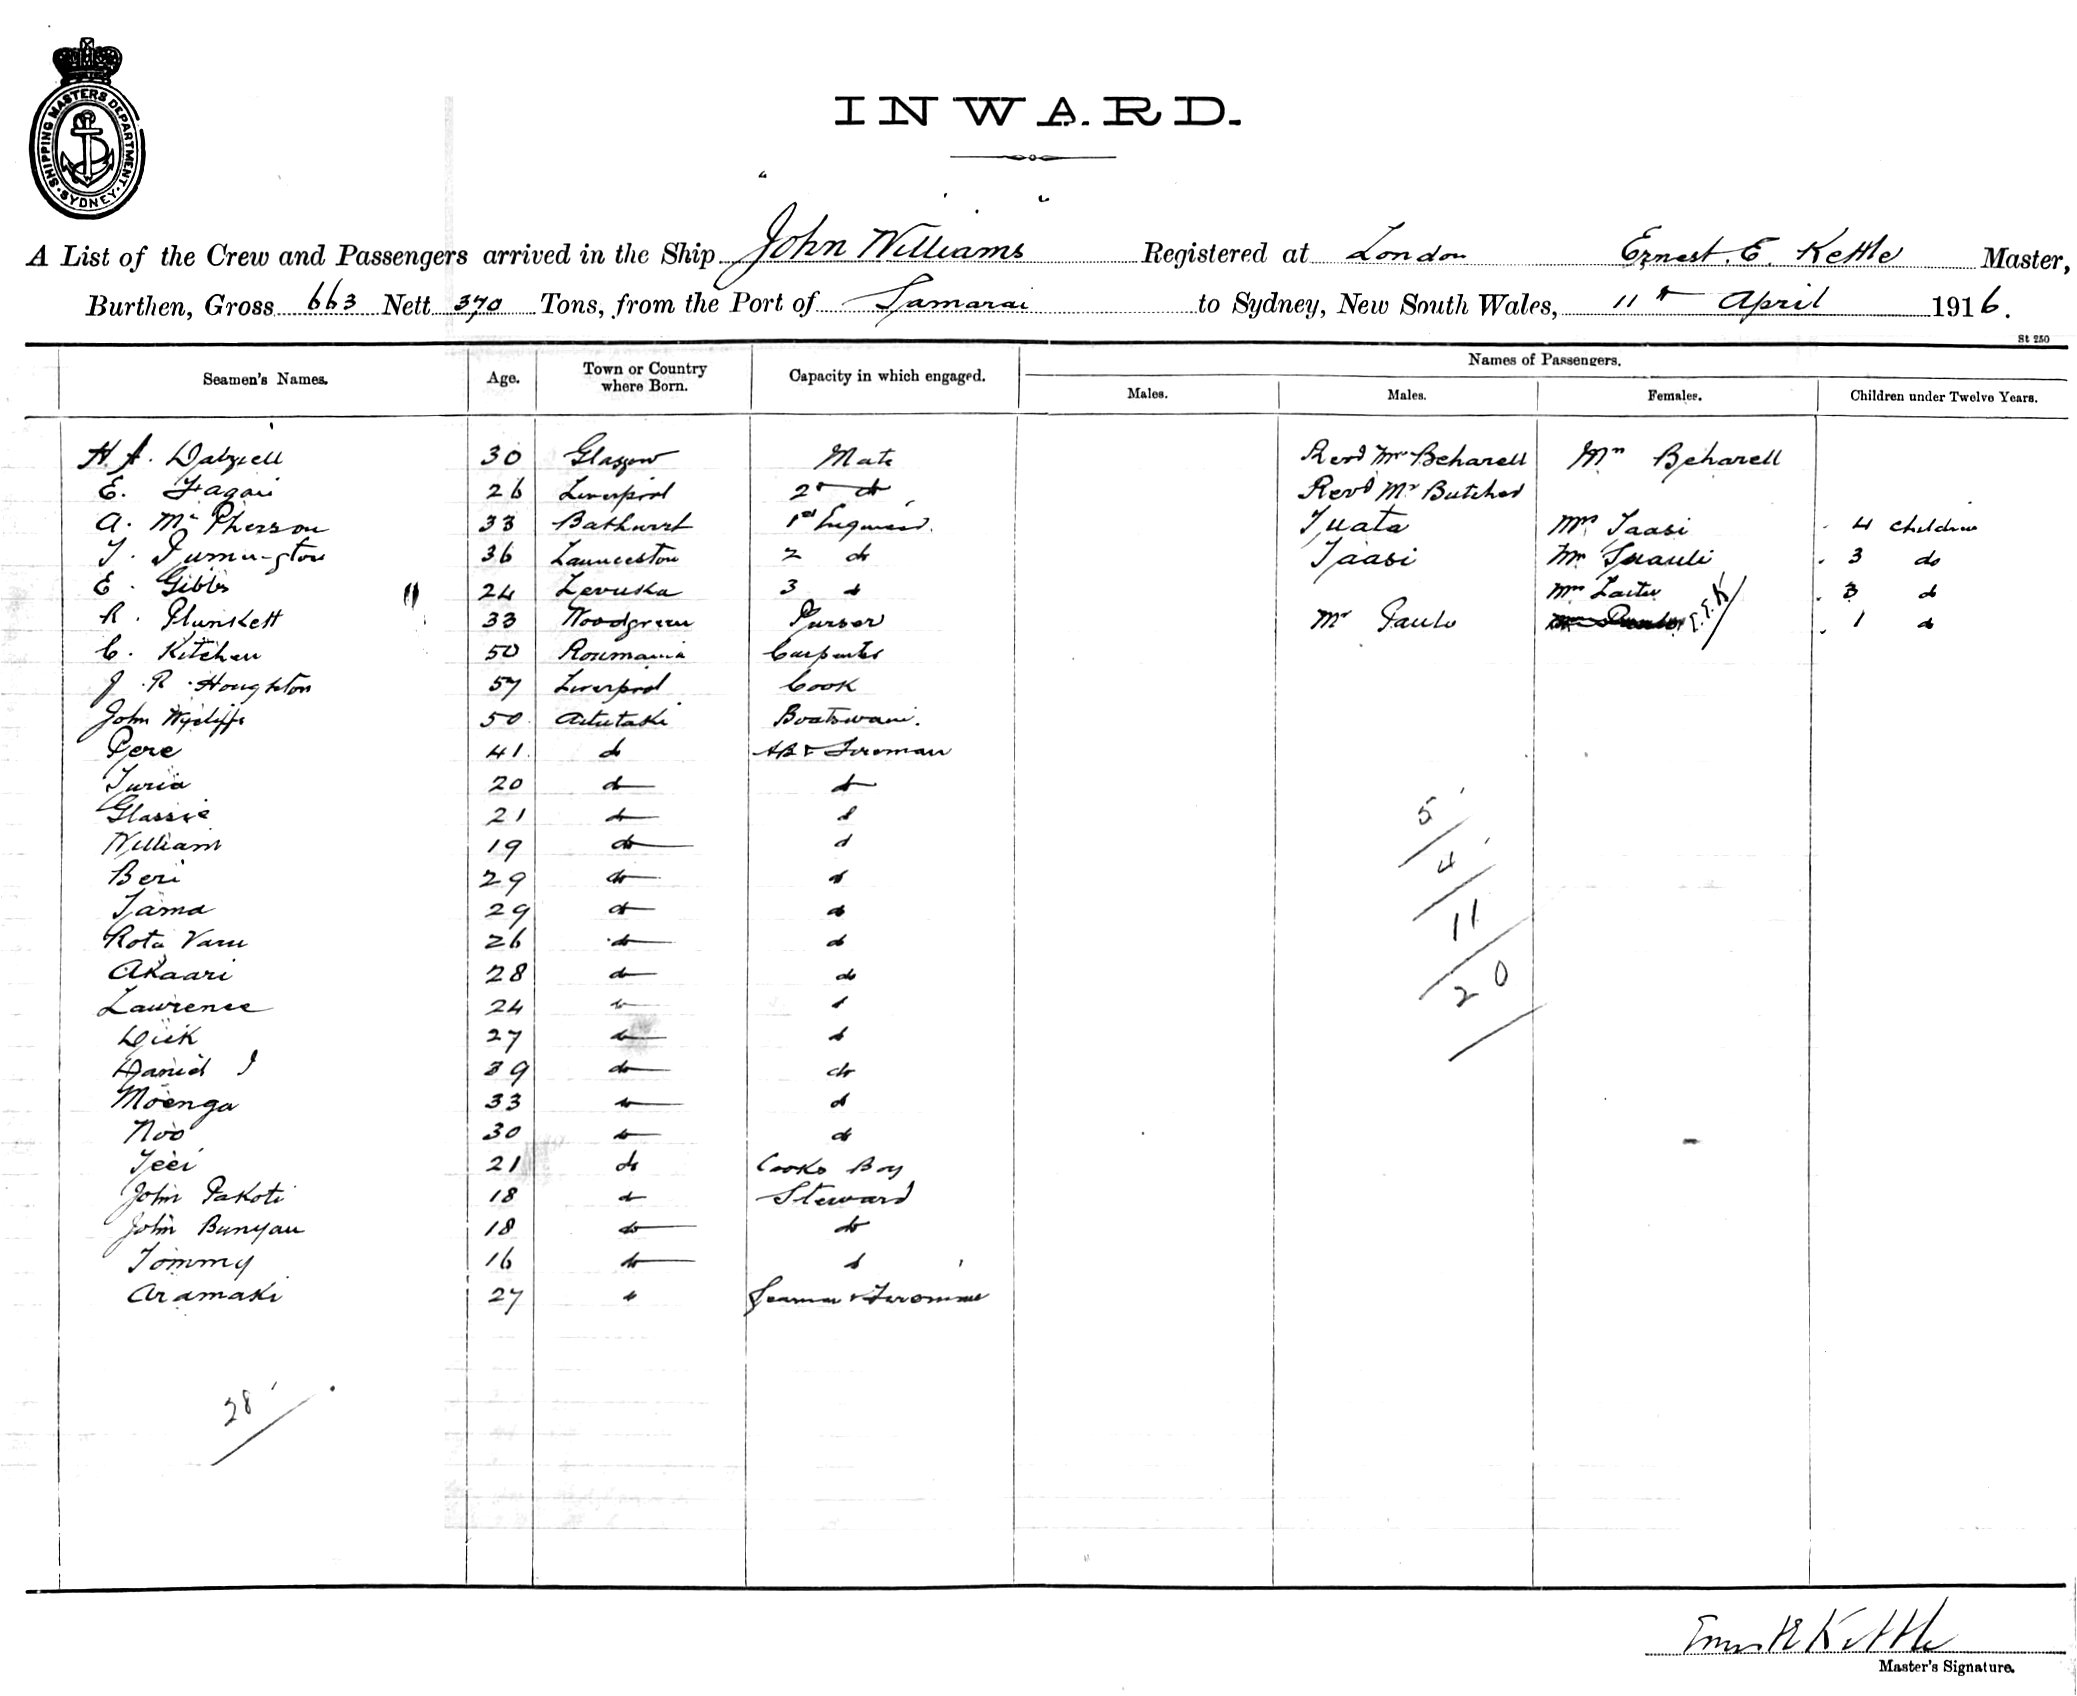 SHIPPING MASTERS DEPARTMENT · SYDNEY ·
INWARD.
A List of the Crew and Passengers arrived in the Ship "John Williams" Registered at London Ernest. E. Kettle Master,
Burthen, Gross 663 Nett 370 Tons, from the Port of Samarai to Sydney, New South Wales, 11th April 1916.
St 250
Seamen's Names. Age. Town or Country where Born. Capacity in which engaged. Names of Passengers.
Males. Males. Females. Children under Twelve Years.
H. A. Dalziell 30 Glasgow Mate Revd Mr Beharell Mrs Beharell
E. Fagan 26 Liverpool 2nd do Revd Mr Butcher
A. McPherson 33 Bathurst 1st Engineer. Tuata Mrs Taasi 4 children
T. 36 Launceston 2 do Taasi Mrs 3 do
E. Gibbs 24 Levuka 3 do Mrs 3 do
R. Plunkett 33 Woodgreen Purser Mr Paulo E.E.K 1 do
C. Kitchen 50 Roumania Carpenter
J. R. Houghton 57 Liverpool Cook
John Wycliffe 50 Aitutaki Boatswain.
Pere 41 do AB & Fireman
Turia 20 do do
Glassie 21 do do
William 19 do do
Beri 29 do do
Tama 29 do do
Rota Varu 26 do do
Akaari 28 do do
Lawrence 24 do do
Dick 27 do do
Daniel I 39 do do
Moenga 33 do do
Noo 30 do do
Teei 21 do Cooks Boy
John Pakoti 18 do Steward
John Bunyan 18 do do
Tommy 16 do do
Aramaki 27 do Seaman & Fireman
5
4
11
20
28
Ernest E Kettle
Master's Signature.